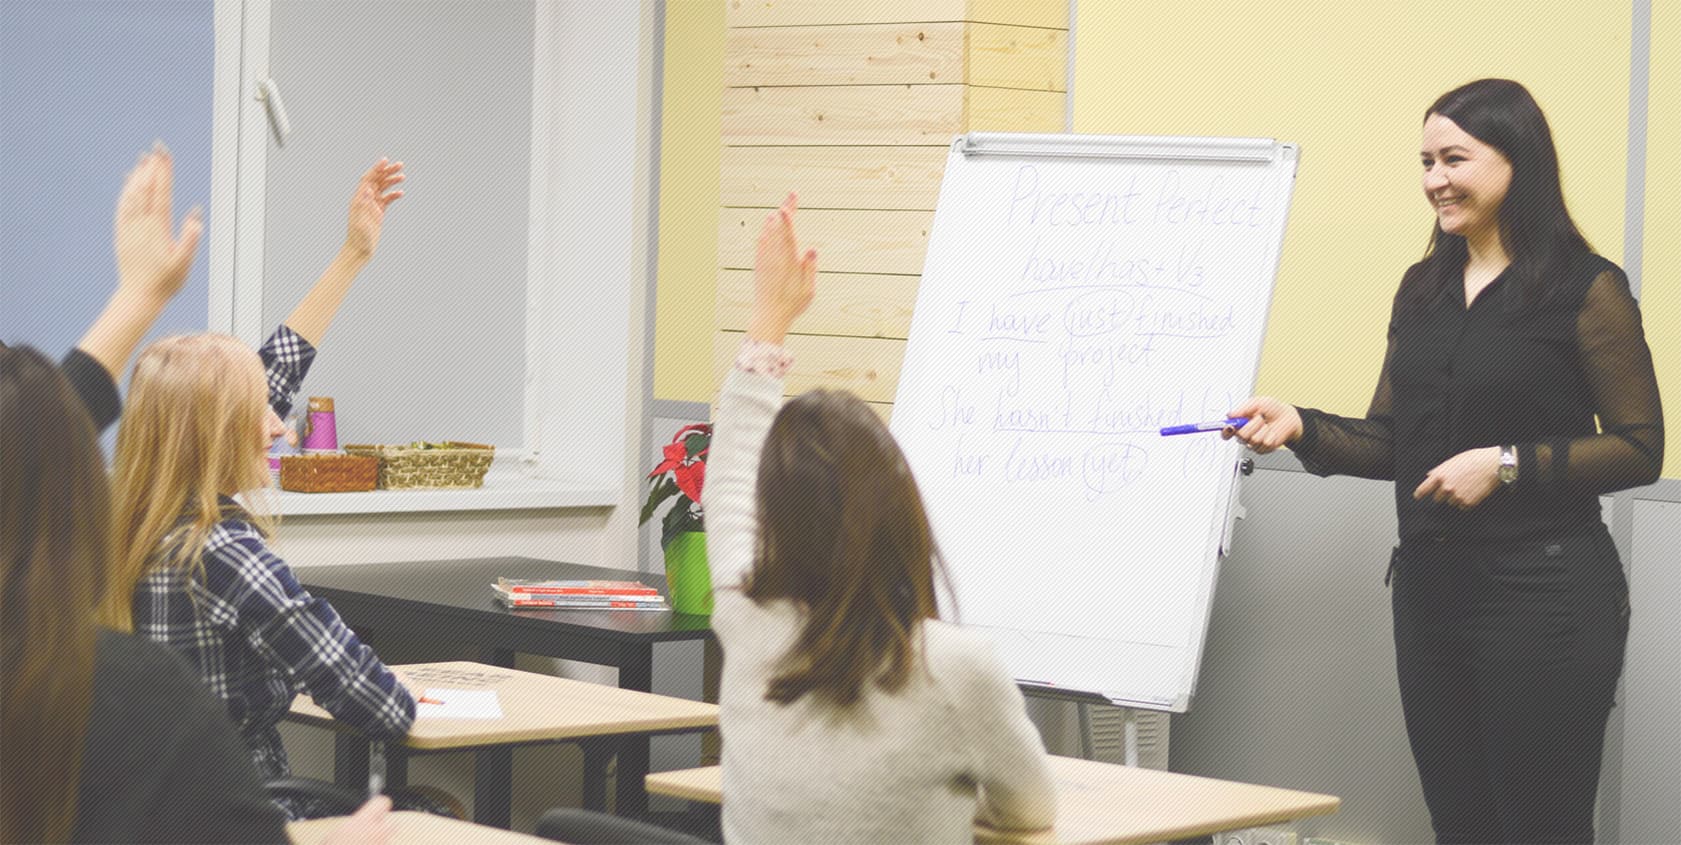 Present Perfect.
have/has + V3
I have just finished
my project
She hasn't finished (-)
her lesson yet. (?)